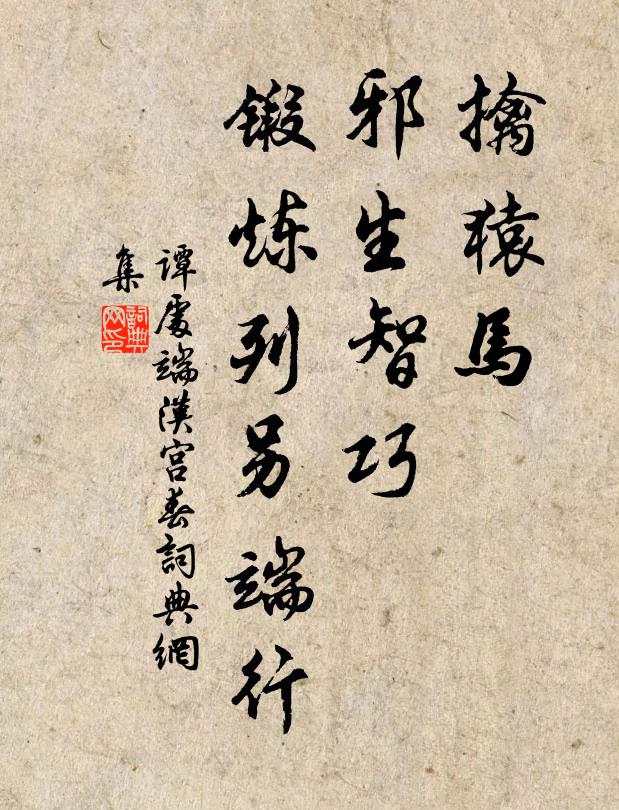 擒猿馬
邪生智巧
鍛炼列另端行
谭處端漢宫春詞典網
集
詞典
网印